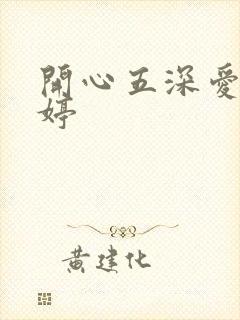 開心五深愛
婷
黄建化